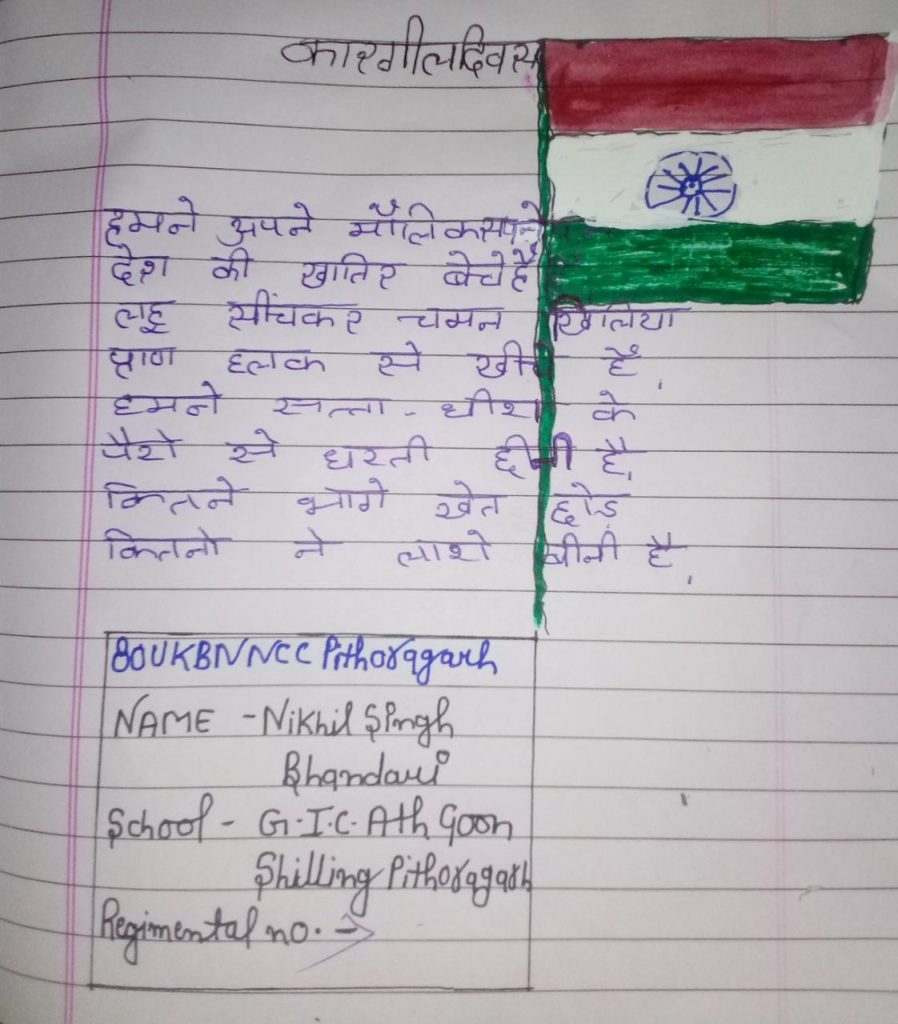 कारगील दिवस
हमने अपने मौलिक सपने
देश की खातिर बेचे है
लहू सींचकर चमन खिलिया
प्राण हलक से खीचे है,
हमने सत्ता-धीशा के
पैरो से धरती छीनी है,
कितने भागे खेत छोड़
कितनो ने लाशे बीनी है,
80UKBNNCC Pithoragarh
NAME - Nikhil Singh
Bhandari
School - G.I.C. Ath Goon
Shilling Pithoragarh
Regimental no. -